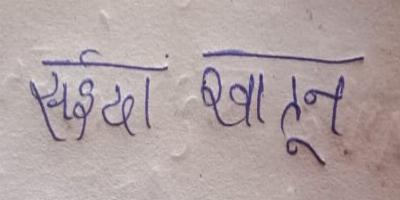 सईदा खातून